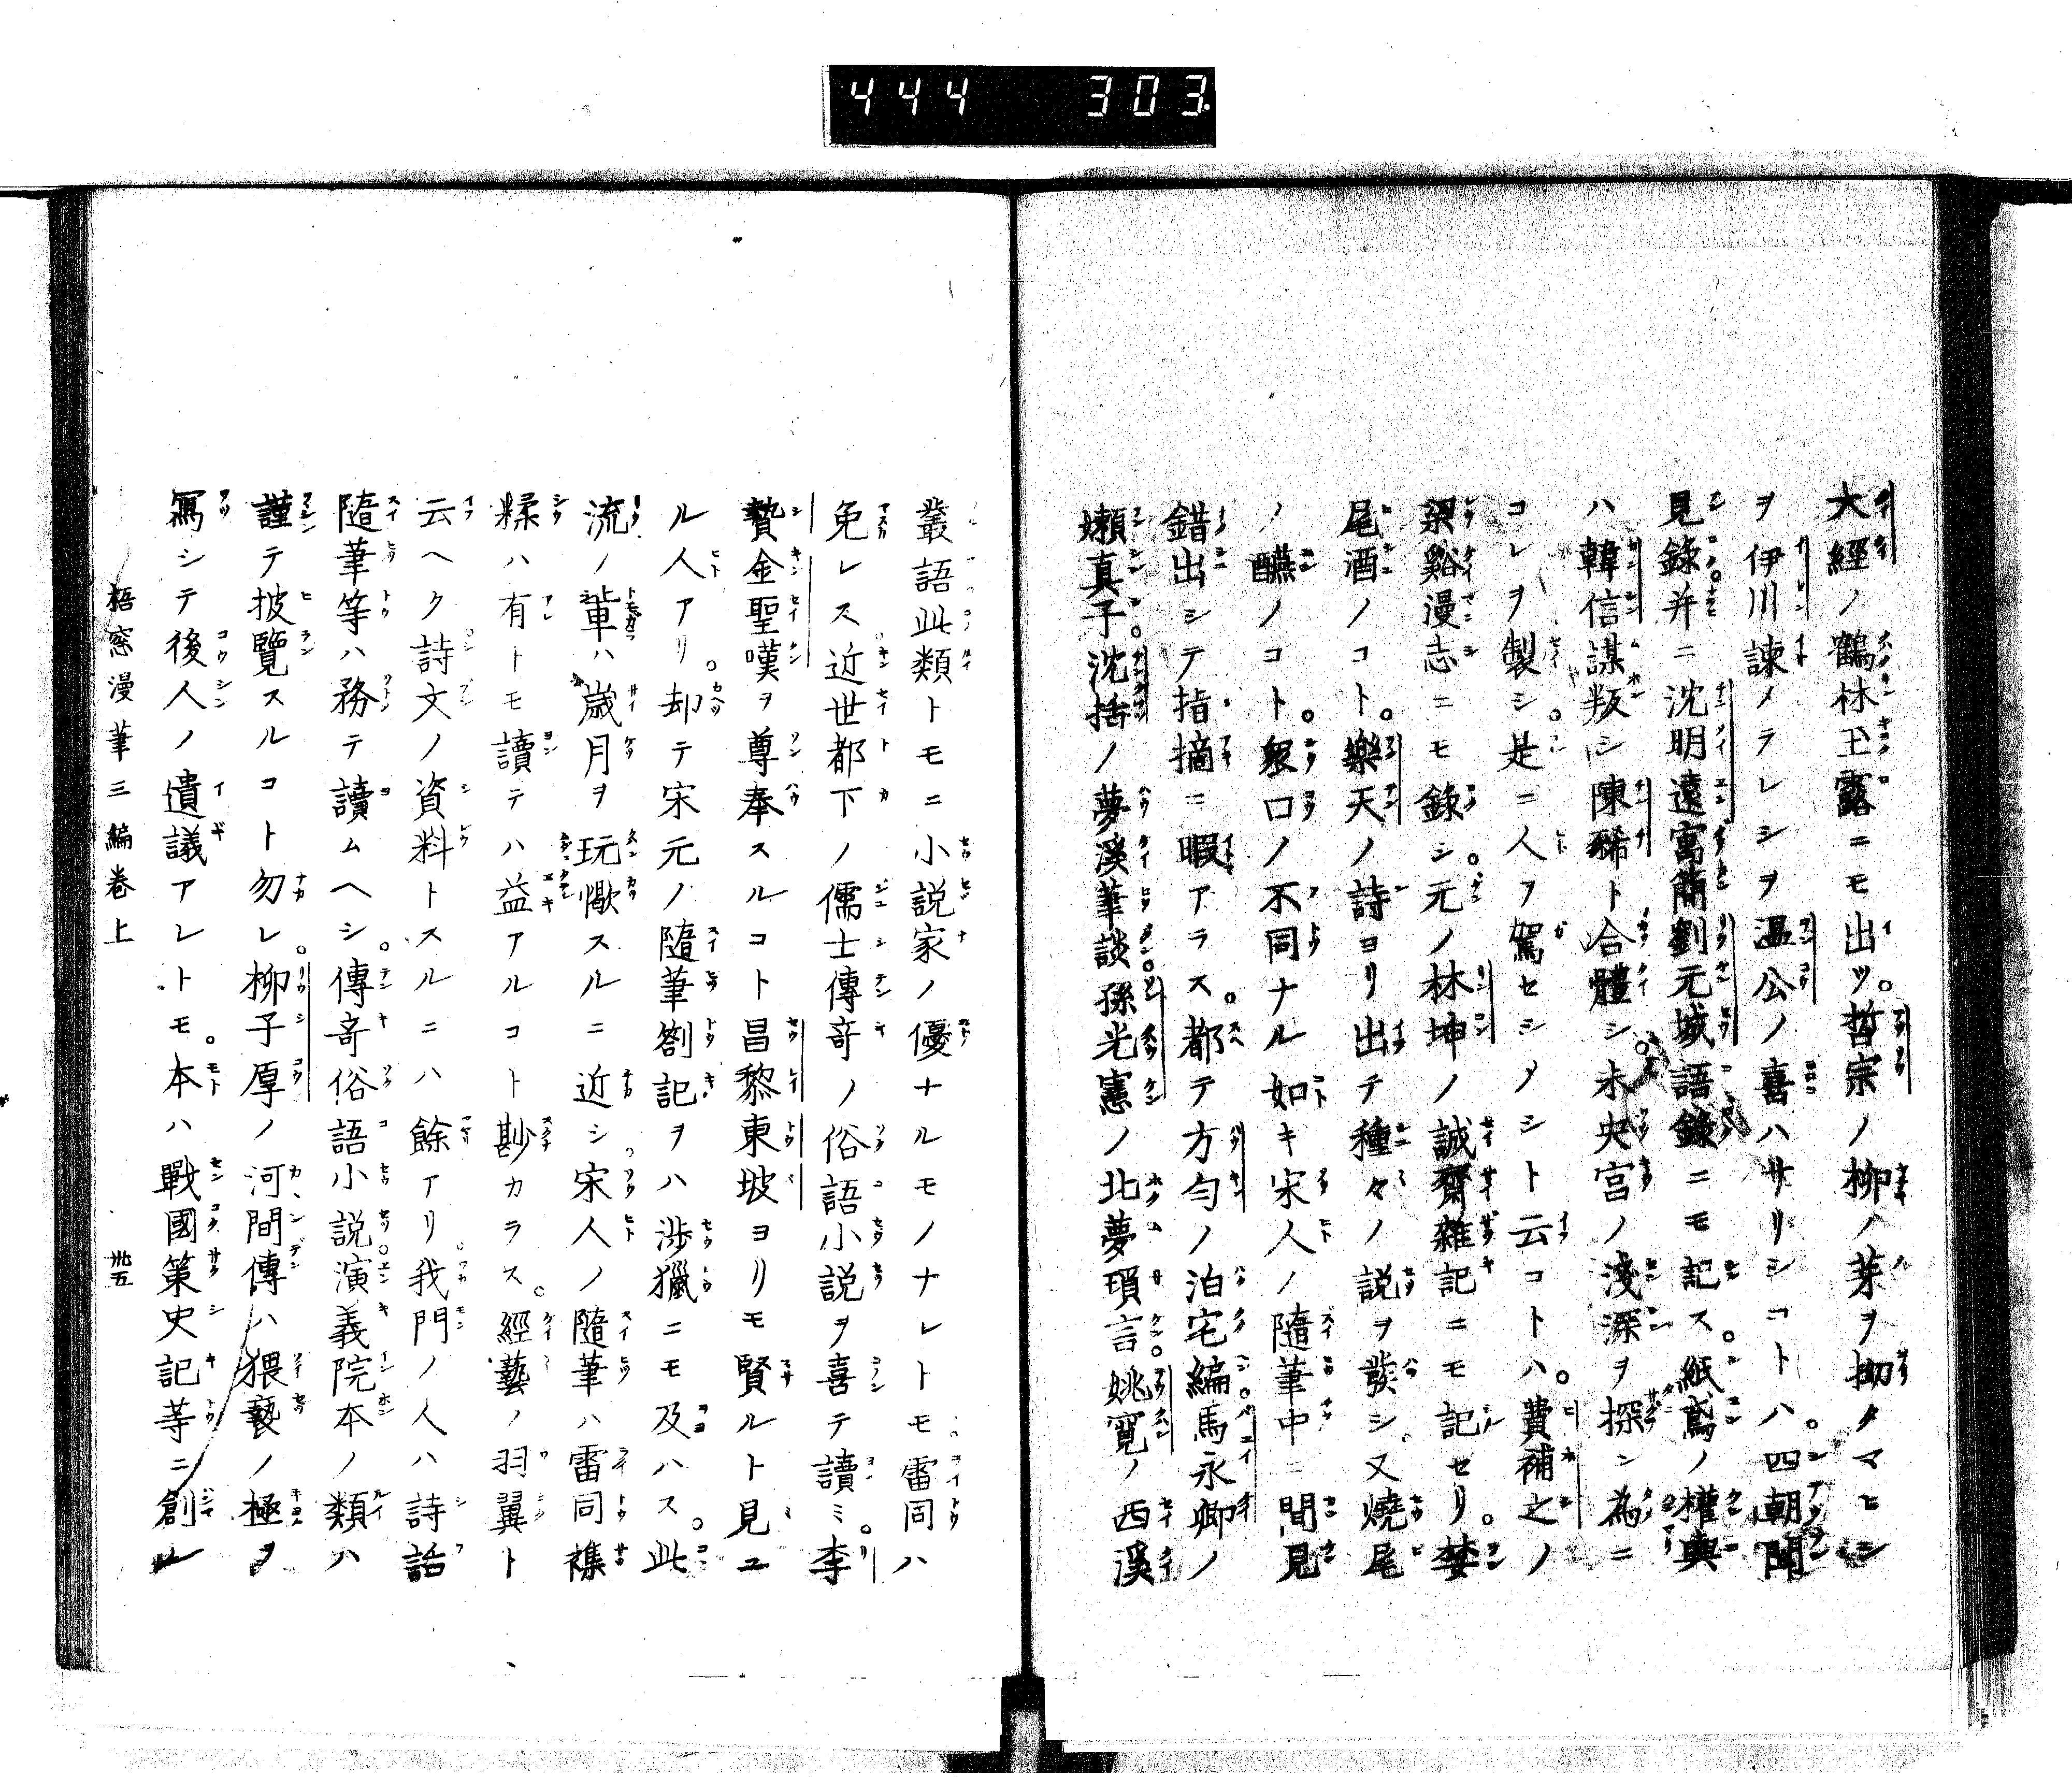 444 303
大經ノ鶴林玉露ニモ出ツ。哲宗ノ柳ノ芽ヲ拗タマヒシ
ヲ伊川諫メラレシヲ温公ノ喜ハサリシコトハ。四朝聞
見錄并ニ沈明遠寓簡劉元城語錄ニモ記ス。紙鳶ノ權輿
ハ韓信謀叛シ陳豨ト合體シ。未央宮ノ淺深ヲ探ン為ニ
コレヲ製シ。是ニ人ヲ駕セシメシト云コトハ。費補之ノ
梁谿漫志ニモ錄シ。元ノ林坤ノ誠齋雜記ニモ記セリ。婪
尾酒ノコト。樂天ノ詩ヨリ出テ種々ノ説ヲ發シ。又燒尾
ノ醼ノコト。衆口ノ不同ナル如キ宋人ノ隨筆中ニ間見
錯出シテ指摘ニ暇アラス。都テ方勻ノ泊宅編。馬永卿ノ
嬾真子。沈括ノ夢溪筆談。孫光憲ノ北夢瑣言。姚寛ノ西溪
叢語此類トモニ小説家ノ優ナルモノナレトモ。雷同ハ
免レス。近世都下ノ儒士傳奇ノ俗語小説ヲ喜テ讀ミ。李
贄金聖嘆ヲ尊奉スルコト昌黎東坡ヨリモ賢ルト見ユ
ル人アリ。却テ宋元ノ隨筆劄記ヲハ渉獵ニモ及ハス。此
流ノ輩ハ歳月ヲ玩愒スルニ近シ。宋人ノ隨筆ハ雷同襍
糅ハ有トモ讀テハ益アルコト尠カラス。經藝ノ羽翼ト
云ヘク詩文ノ資料トスルニハ餘アリ。我門ノ人ハ詩話
隨筆等ハ務テ讀ムヘシ。傳奇俗語小説。演義院本ノ類ハ
謹テ披覽スルコト勿レ。柳子厚ノ河間傳ハ猥褻ノ極ヲ
寫シテ後人ノ遺議アレトモ。本ハ戰國策史記等ニ創レ
梧窓漫筆三編卷上 卅五